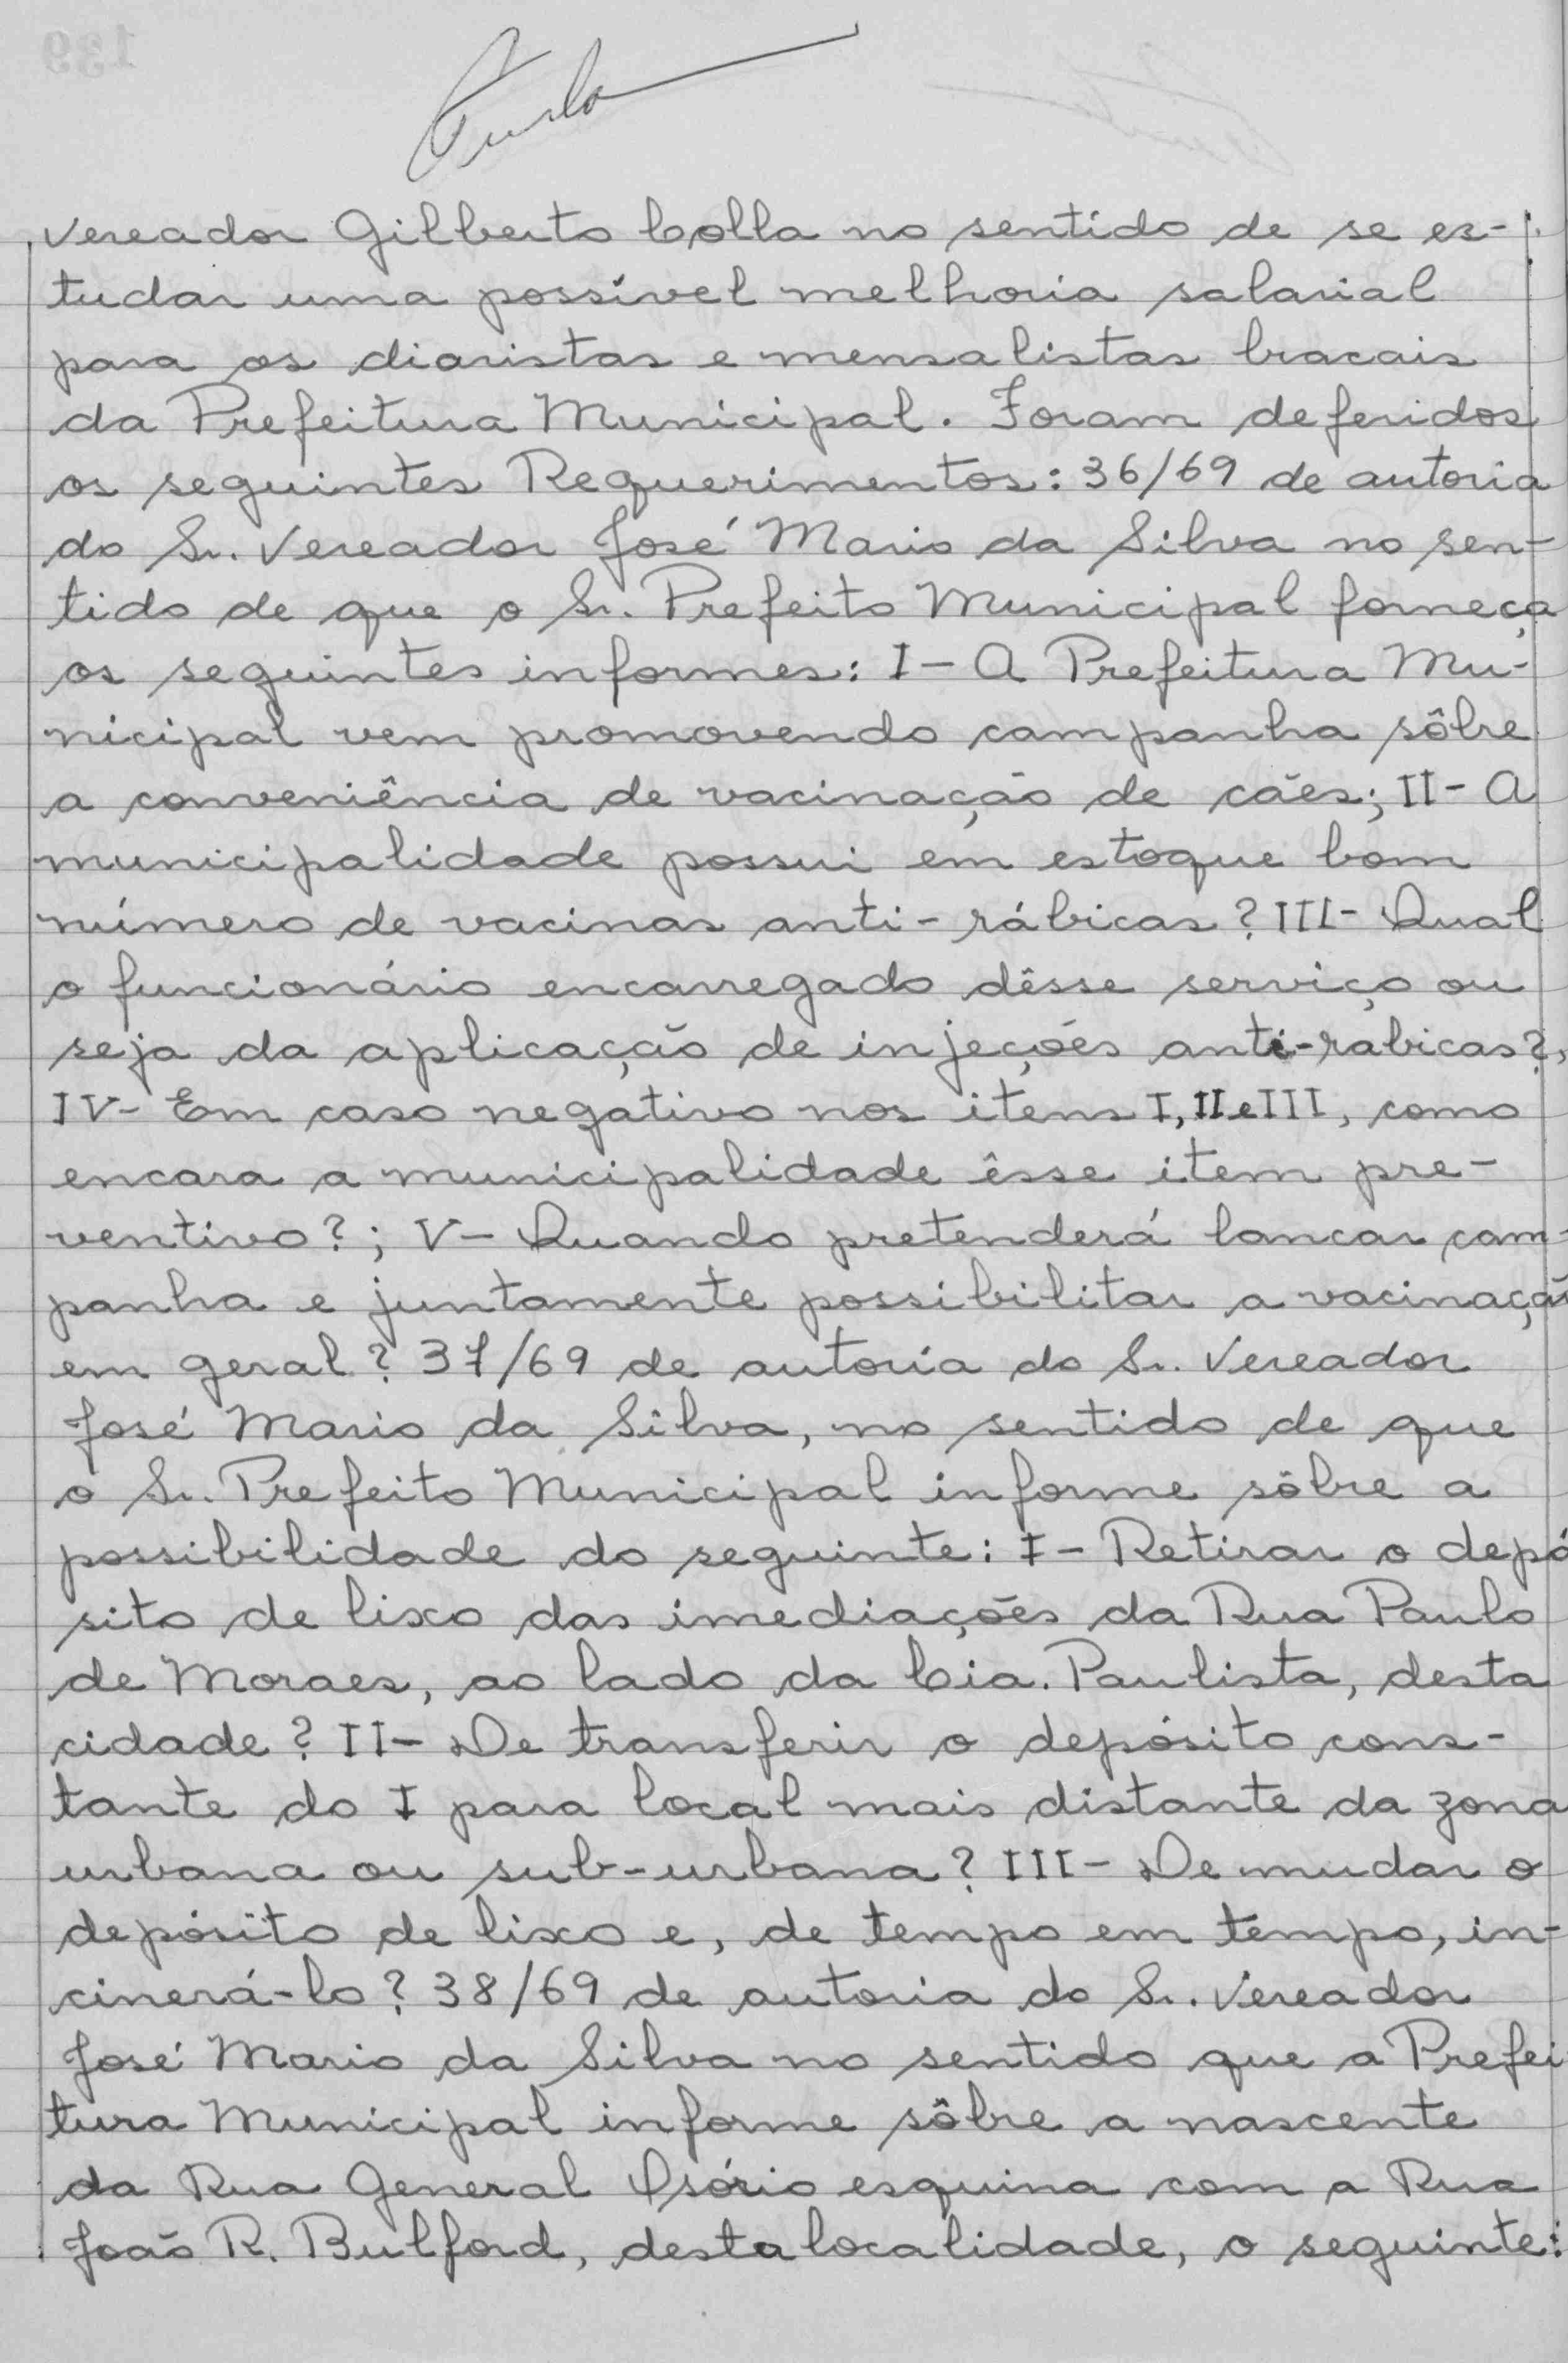 vereador Gilberto Colla no sentido de se es-
tudar uma possível melhoria salarial
para os diaristas e mensalistas bracais
da Prefeitura Municipal. Foram deferidos
os seguintes Requerimentos: 36/69 de autoria
do Sr. Vereador José Mario da Silva no sen-
tido de que o Sr. Prefeito Municipal forneça
os seguintes informes: I - A Prefeitura Mu-
nicipal vem promovendo campanha sôbre
a conveniência de vacinação de cães; II - A
municipalidade possui em estoque bom
número de vacinas anti-rábicas? III - Qual
o funcionário encarregado dêsse serviço ou
seja da aplicação de injeções anti-rabicas?,
IV - Em caso negativo nos itens I, II e III, como
encara a municipalidade êsse item pre-
ventivo?; V - Quando pretenderá lancar cam-
panha e juntamente possibilitar a vacinação
em geral? 37/69 de autoria do Sr. Vereador
José Mario da Silva, no sentido de que
o Sr. Prefeito Municipal informe sôbre a
possibilidade do seguinte: I - Retirar o depó
sito de lixo das imediações da Rua Paulo
de Moraes, ao lado da Cia. Paulista, desta
cidade? II - De transferir o depósito cons-
tante do I para local mais distante da zona
urbana ou sub-urbana? III - De mudar o
depósito de lixo e, de tempo em tempo, in-
cinerá-lo? 38/69 de autoria do Sr. Vereador
José Mario da Silva no sentido que a Prefei
tura Municipal informe sôbre a nascente
da Rua General Osório esquina com a Rua
João R. Bulford, desta localidade, o seguinte: